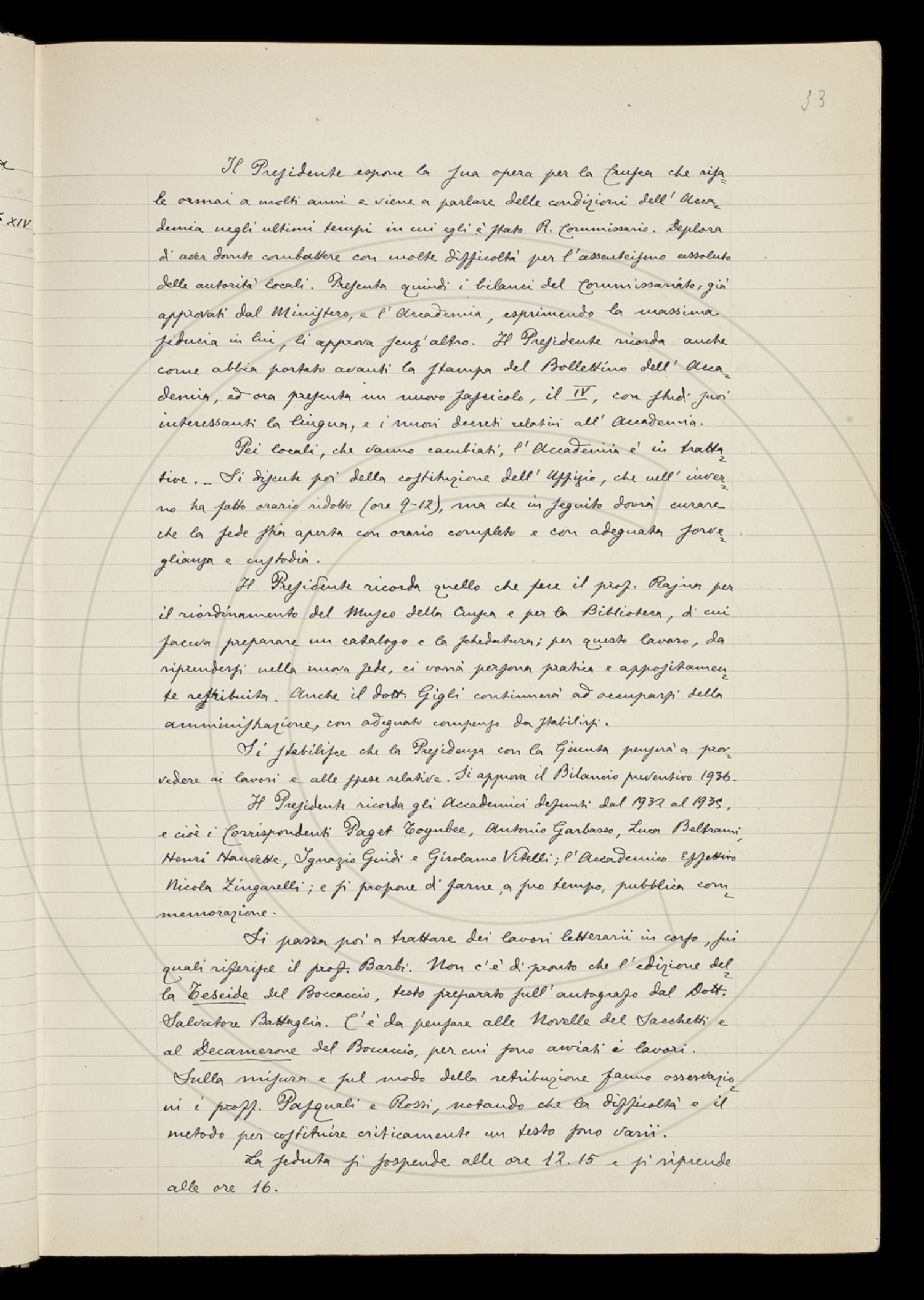 33
XIV
Il Presidente espone la sua opera per la Crusca che risa-
le ormai a molti anni e viene a parlare delle condizioni dell'Acca-
demia negli ultimi tempi in cui egli è stato R. Commissario. Deplora
di aver dovuto combattere con molte difficoltà per l'assenteismo assoluto
delle autorità locali. Presenta quindi i bilanci del Commissariato, già
approvati dal Ministero, e l'Accademia, esprimendo la massima
fiducia in lui, li approva senz'altro. Il Presidente ricorda anche
come abbia portato avanti la stampa del Bollettino dell'Acca-
demia, ed ora presenta un nuovo fascicolo, il IV, con studi suoi
interessanti la lingua, e i nuovi decreti relativi all'Accademia.
Pei locali, che vanno cambiati, l'Accademia è in tratta-
tive. - Si discute poi della costituzione dell'Uffizio, che nell'inver-
no ha fatto orario ridotto (ore 9-12), ma che in seguito dovrà curare
che la sede stia aperta con orario completo e con adeguata sorve-
glianza e custodia.
Il Presidente ricorda quello che fece il prof. Rajna per
il riordinamento del Museo della Crusca e per la Biblioteca, di cui
faceva preparare un catalogo e la schedatura; per questo lavoro, da
riprendersi nella nuova sede, ci vorrà persona pratica e appositamen-
te restribuita. Anche il dott. Gigli continuerà ad occuparsi della
amministrazione, con adeguato compenso da stabilirsi.
Si stabilisce che la Presidenza con la Giunta penserà a prov-
vedere ai lavori e alle spese relative. Si approva il Bilancio preventivo 1936.
Il Presidente ricorda gli Accademici defunti dal 1932 al 1935,
e cioè i Corrispondenti Paget Toynbee, Antonio Garbasso, Luca Beltrami,
Henri Hauvette, Ignazio Guidi e Girolamo Vitelli; l'Accademico Effettivo
Nicola Zingarelli; e si propone di farne, a suo tempo, pubblica com-
memorazione.
Si passa poi a trattare dei lavori letterarii in corso, sui
quali riferisce il prof. Barbi. Non c'è di pronto che l'edizione del-
la Teseide del Boccaccio, testo preparato sull'autografo dal Dott.
Salvatore Battaglia. C'è da pensare alle Novelle del Sacchetti e
al Decamerone del Boccaccio, per cui sono avviati i lavori.
Sulla misura e sul modo della retribuzione fanno osservazio-
ni i proff. Pasquali e Rossi, notando che la difficoltà e il
metodo per costituire criticamente un testo sono varii.
La seduta si sospende alle ore 12.15 e si riprende
alle ore 16.